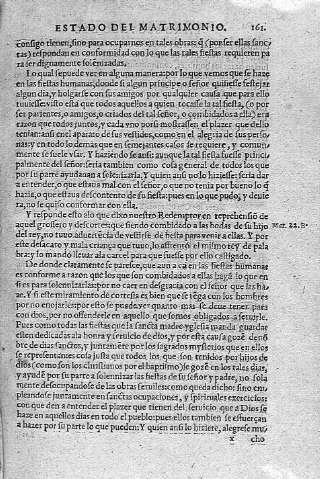 ESTADO DEL MATRIMONIO. 161.
consigo tienen, sino para ocuparnos en tales obras: q̃ (por ser ellas sanc
tas) respondan en conformidad con lo que las tales fiestas requieren pa
ra ser dignamente solenizadas.
Lo qual se puede ver en alguna manera: por lo que vemos que se haze
en las fiestas humanas, donde si algun principe o señor quisiesse festejar
algun dia, y holgarse con sus amigos por qualquier causa que para ello
tuuiesse: visto està que todos aquellos a quien tocasse la tal fiesta, (o por
ser parientes, o amigos, o criados del tal señor, o combidados a ella) era
razon que todos juntos, y cada vno por si mostrassen el plazer que dello
tenian: ansi en el aparato de sus vestidos, como en el alegria de sus perso
nas: y en todo lo demas que en semejantes casos se requiere, y comun
mente se suele vsar. Y haziendo se ansi: aunque la tal fiesta fuesse princi
palmente del señor: seria tambien como cosa general de todos los que
por su parte ayudaran a solenizarla. Y quien ansi no lo hiziesse: seria dar
a entender, o que estaua mal con el señor, o que no tenia por bueno lo q̃
hazia, o que estaua descontento de su fiesta: pues en lo que pudo, y deuie
ra, no se quiso conformar con ella.
Y responde esto a lo que dixo nuestro Redemptor en reprehension de
aquel grossero y descortes: que siendo combidado a las bodas de su hijo
Mat. 22. B.
del rey, no tuuo aduertencia de vestirse de fiesta para venir a ellas. Y por
este desacato y mala criança que tuuo, lo affrento el mismo rey de pala
bra: y lo mando lleuar a la carcel para que fuesse por ello castigado.
De donde claramente se paresce, que aun acà en las fiestas humanas
es conforme a razon que los que son combidados a ellas hagã lo que en
si es para solenizarlas: por no caer en desgracia con el señor que las ha-
ze. Y si este miramiento de cortesia es bien que se tẽga con los hombres
por no enojarles: por esto se puede ver quanto mas se deue tener para
con dios, por no offenderle en aquello que somos obligados a seruirle.
Pues como todas las fiestas que la sancta madre yglesia manda guardar
esten dedicadas a la honra y seruicio de dios, y por esta causa gozẽ de nõ
bre de dias sanctos, y juntamẽte por los sagrados mysterios que en ellos
se representan: es cosa justa que todos los que son tenidos por hijos de
dios (como son los christianos por el baptismo) se gozẽ en los tales dias,
y ayudẽ por su parte a solennizar las fiestas de su señor y padre, no sola
mente desocupandose de las obras seruiles: como queda dicho: sino em
pleandose juntamente en sanctas ocupaciones, y spirituales exercicios:
con que den a entender el plazer que tienen del seruicio que a Dios se
haze en aquellos dias en todo el pueblo: pues ellos tambien se esfuerçan
a hazer por su parte lo que pueden. Y quien ansi lo hiziere, alegrese mu
x cho